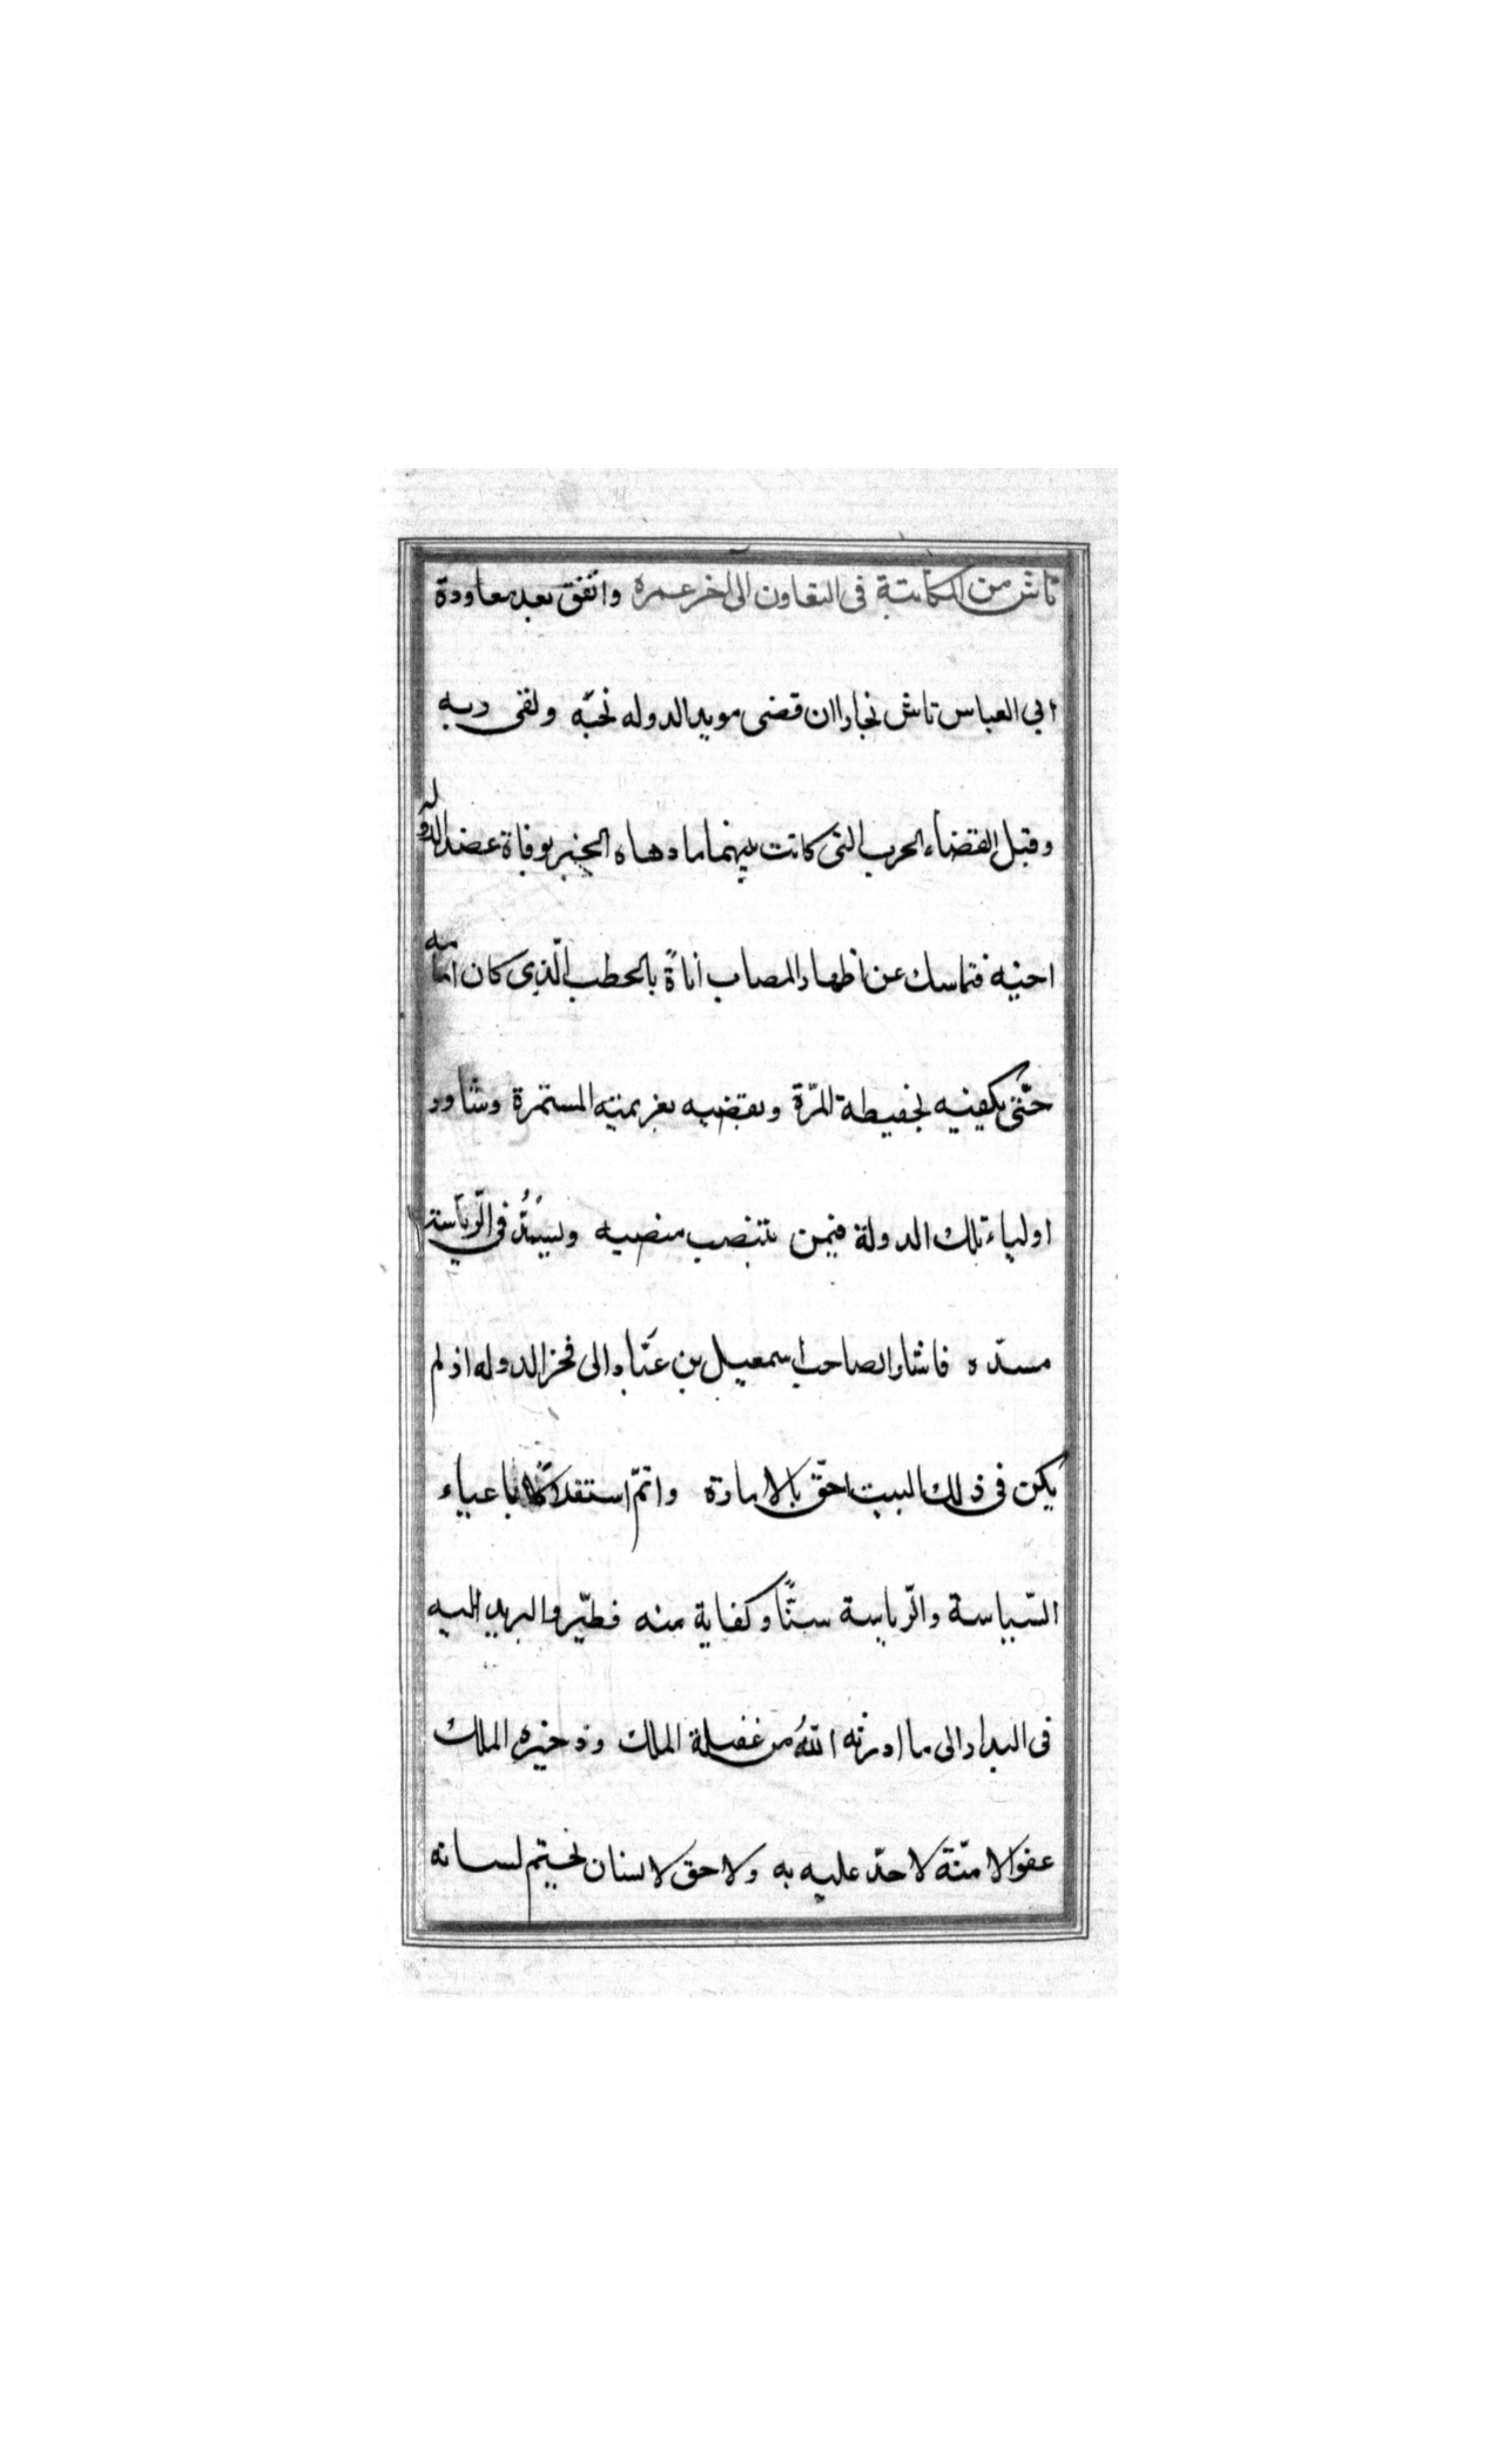 تاش من المكاتبة فى التعاون الى اخر عمره واتفق بعد معاودة
ابى العباس تاش بخارا ان قضى مويد الدوله نحبّه ولقى ربه
وقبل انقضاء الحرب التى كانت بينهما ما دهاه الخبر بوفاة عضد الدوله
اخيه فتماسك عن اظهار المصاب اناةً بالحطب الّذى كان امامه
حتّى يكفيه بحفيظة المرّة ويقضيه بعزيمته المستمرة وشاور
اولياء تلك الدولة فيمن ينتصب منصبه ويسُدّ فى الرّياسة
مسدّه فاشار الصاحب اسمعيل بن عبّاد الى فخر الدوله اذ لم
يكن فى ذلك البيت احقّ بالامارة واتمّ استقلالًا باعباء
السّياسة والرّياسة سنًّا وكفاية منه فطيّروا البريد اليه
فى البدار الى ما اورثه اللهُ من غفيلة الملك وذخيره الملك
عفوا لا منّة لاحدّ عليه به ولا حق لانسان يختم لسانه